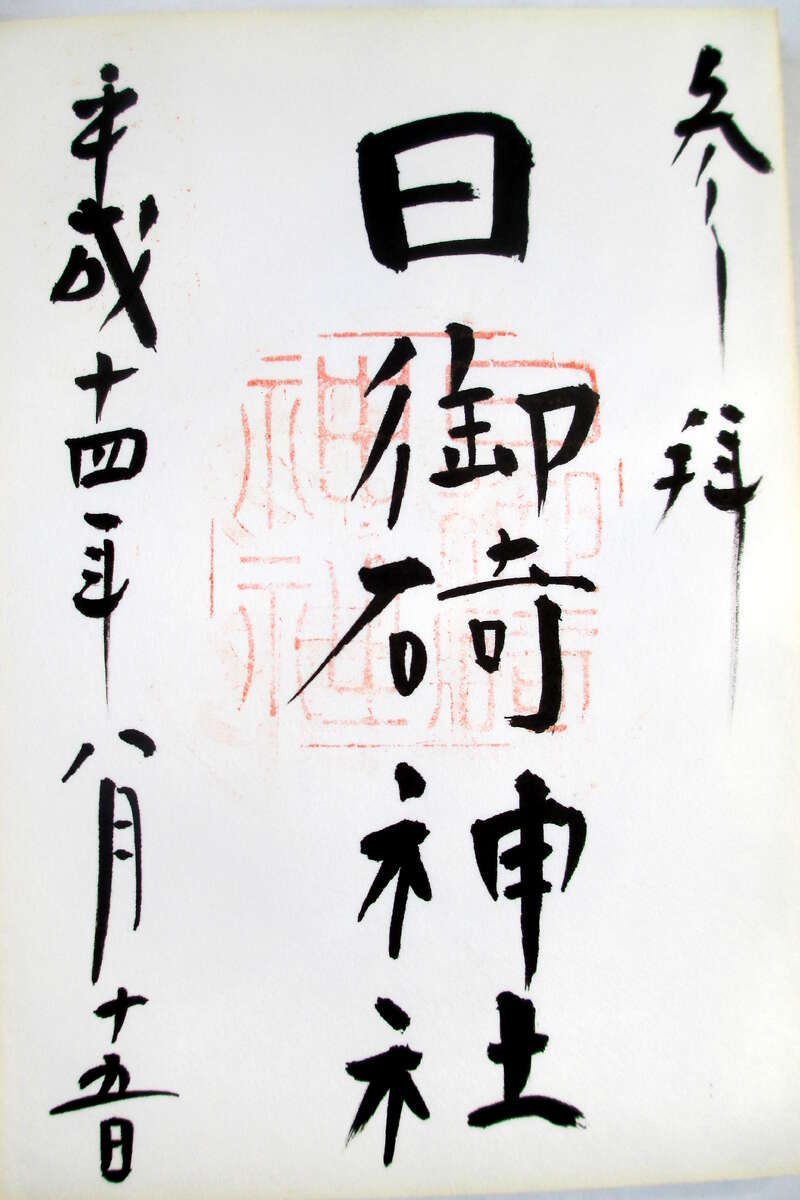 参拜
日御碕神社
平成十四年八月十五日